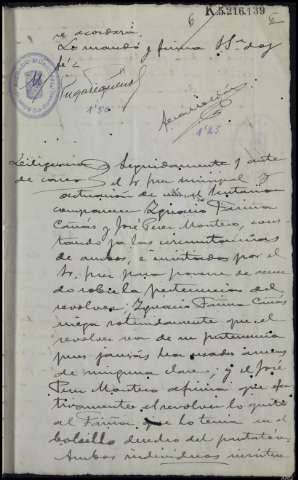 6
K.5.216.139
se acordará.
Lo mandó y firma S.Sª doy
fé
1'50
1'25
Diligencia Seguidamente y ante
de careo el Sr. juez municipal y
actuación de mi el
comparecen Ignacio
Cañás y José Perez Montero, cons-
tando ya las circunstancias
de ambos, e invitados por el
Sr. juez para ponerse de acuer-
do sobre la pertenencia del
revolver, Ignacio Cañás
niega rotundamente que el
revolver sea de su pertenencia
pues jamás ha usado armas
de ninguna clase; y el José
Perez Montero afirma que efec-
tivamente el revolver lo quitó
al que lo tenia en el
bolsillo derecho del pantalón.
Ambos individuos